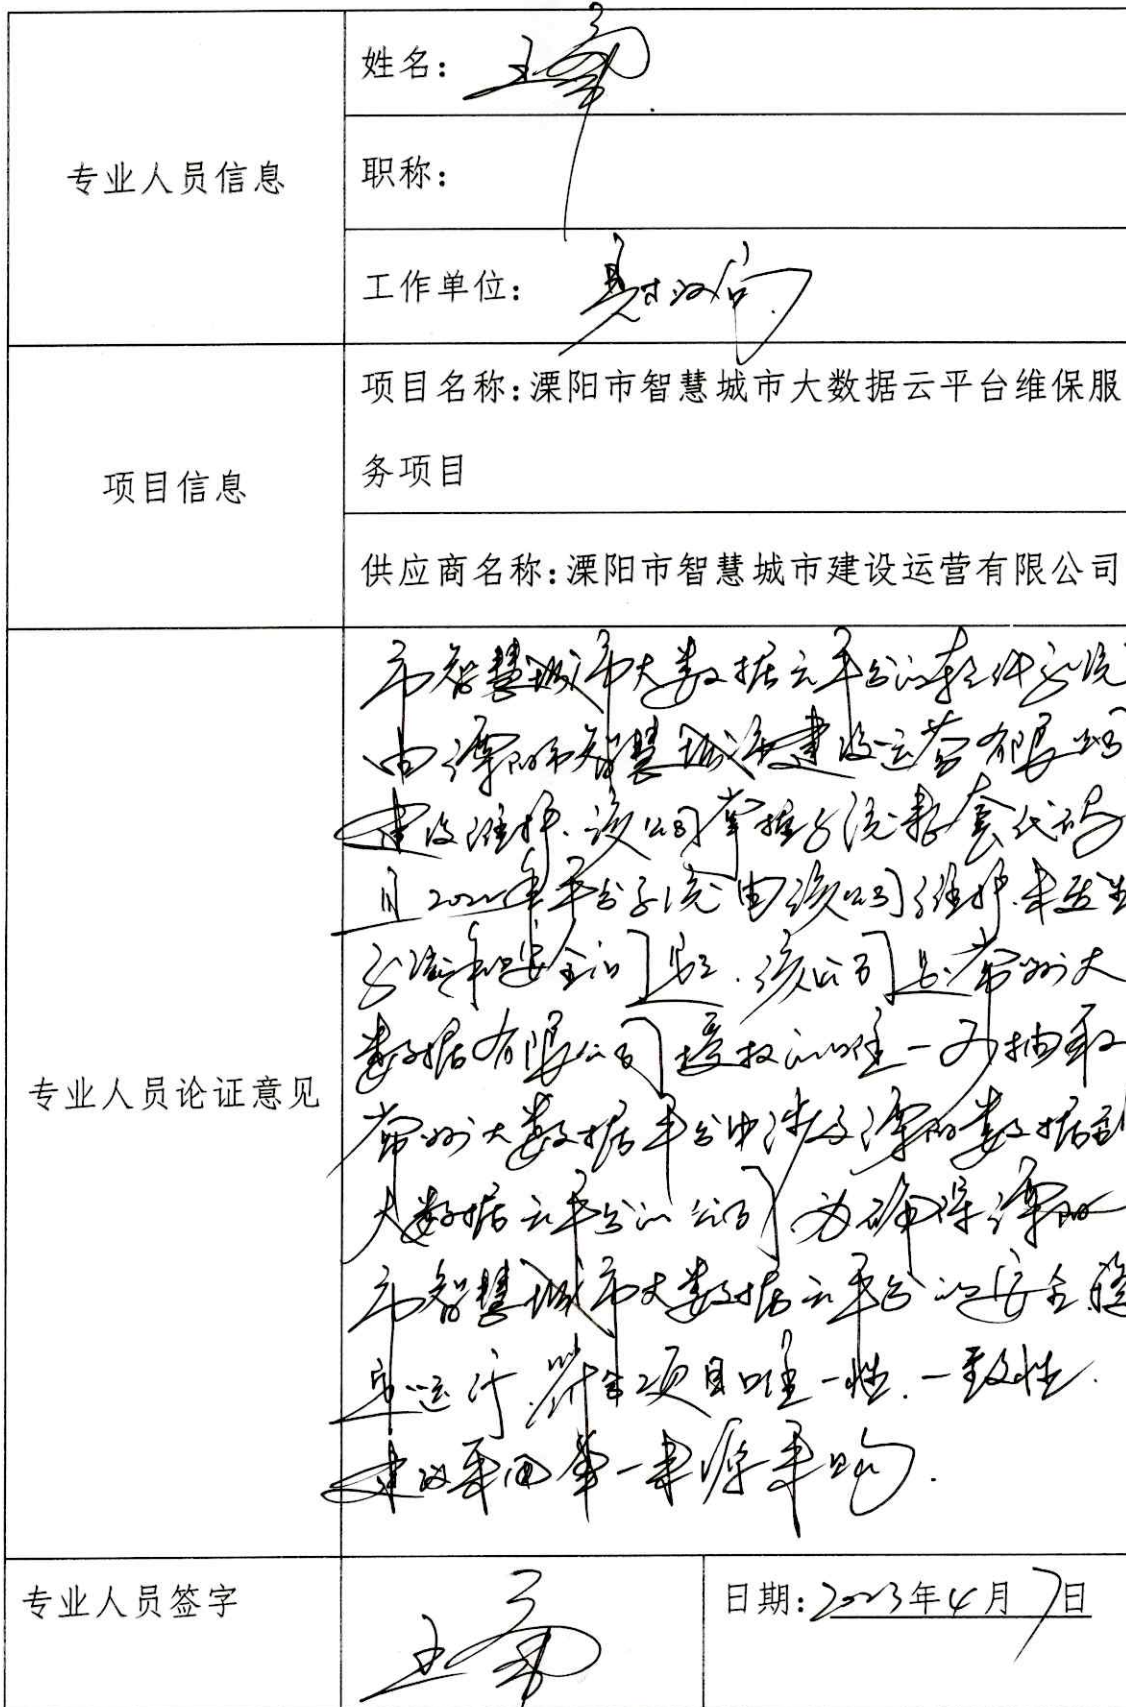 专业人员信息
姓名：王
职称：
工作单位：财政局
项目信息
项目名称：溧阳市智慧城市大数据云平台维保服
务项目
供应商名称：溧阳市智慧城市建设运营有限公司
专业人员论证意见
市智慧城市大数据云平台的软件系统
由溧阳市智慧城市建设运营有限公司
建设维护.该公司掌握系统整套代码
且2022年平台系统由该公司维护.未发生
系统和安全问题.该公司是常州大
数据有限公司授权的唯一可抽取
常州大数据平台中涉及溧阳数据到
大数据云平台的公司.为确保溧阳
市智慧城市大数据云平台的安全稳
定运行.符合项目唯一性.一致性.
建议采用单一来源采购.
专业人员签字
王
日期：2023年4月7日